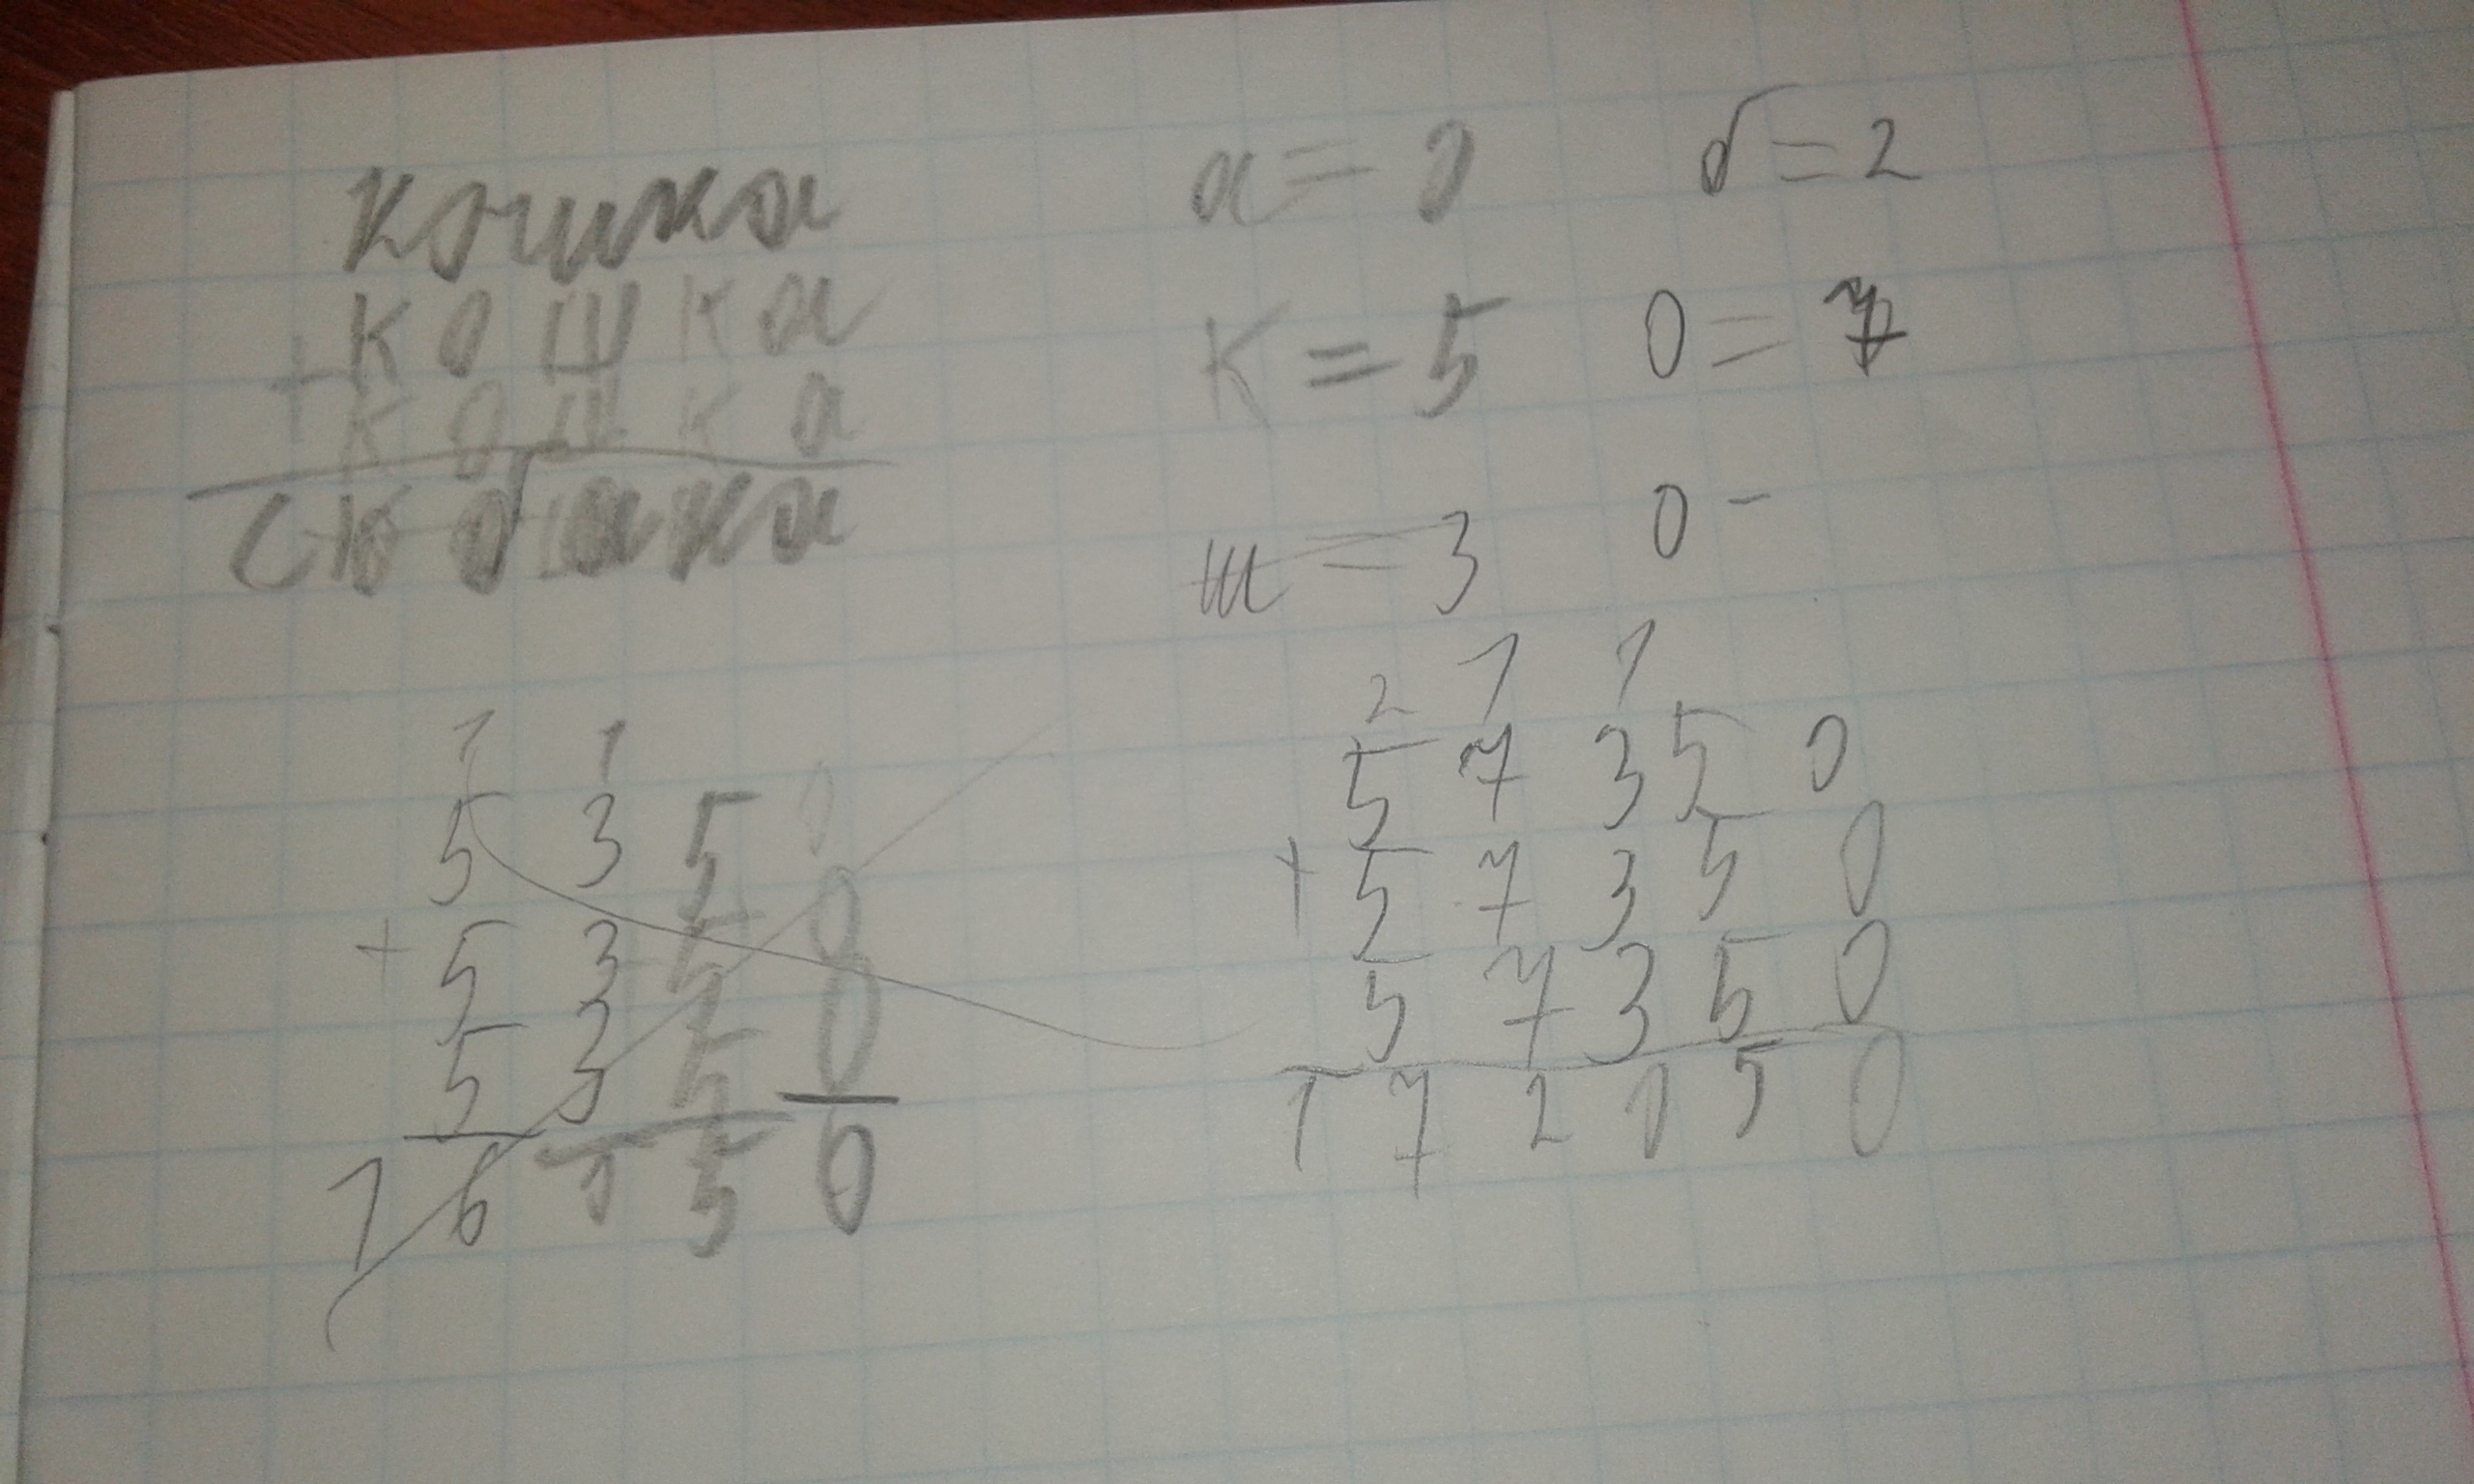 кошка
а = 0 б = 2
+ к о ш к а
к = 5 о = 7
к о ш к а
собака
ш = 3 о -
2 1 1
1 1
5 7 3 5 0
5 3 5
+ 5 7 3 5 0
+ 5 3 5 0
5 7 3 5 0
5 3 5 0
1 7 2 0 5 0
1 6 0 5 0